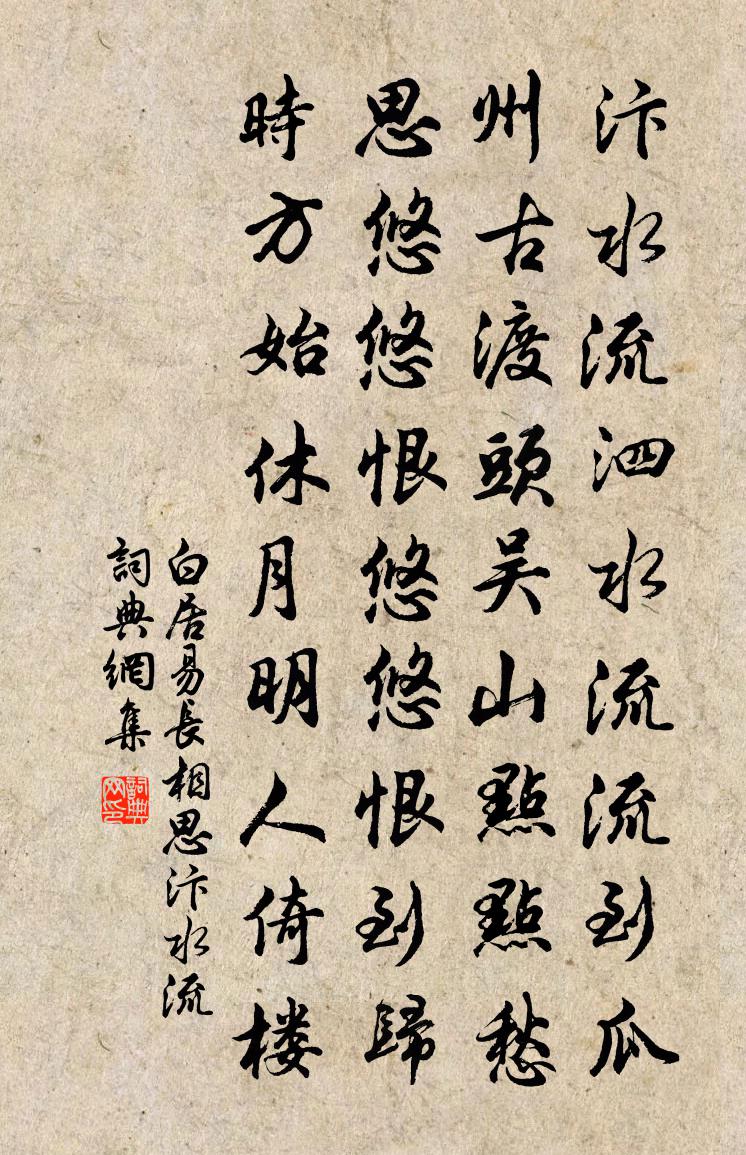 汴水流泗水流流到瓜
州古渡頭吴山點點愁
思悠悠恨悠悠恨到歸
時方始休月明人倚楼
白居易長相思汴水流
詞典網集
詞典网印